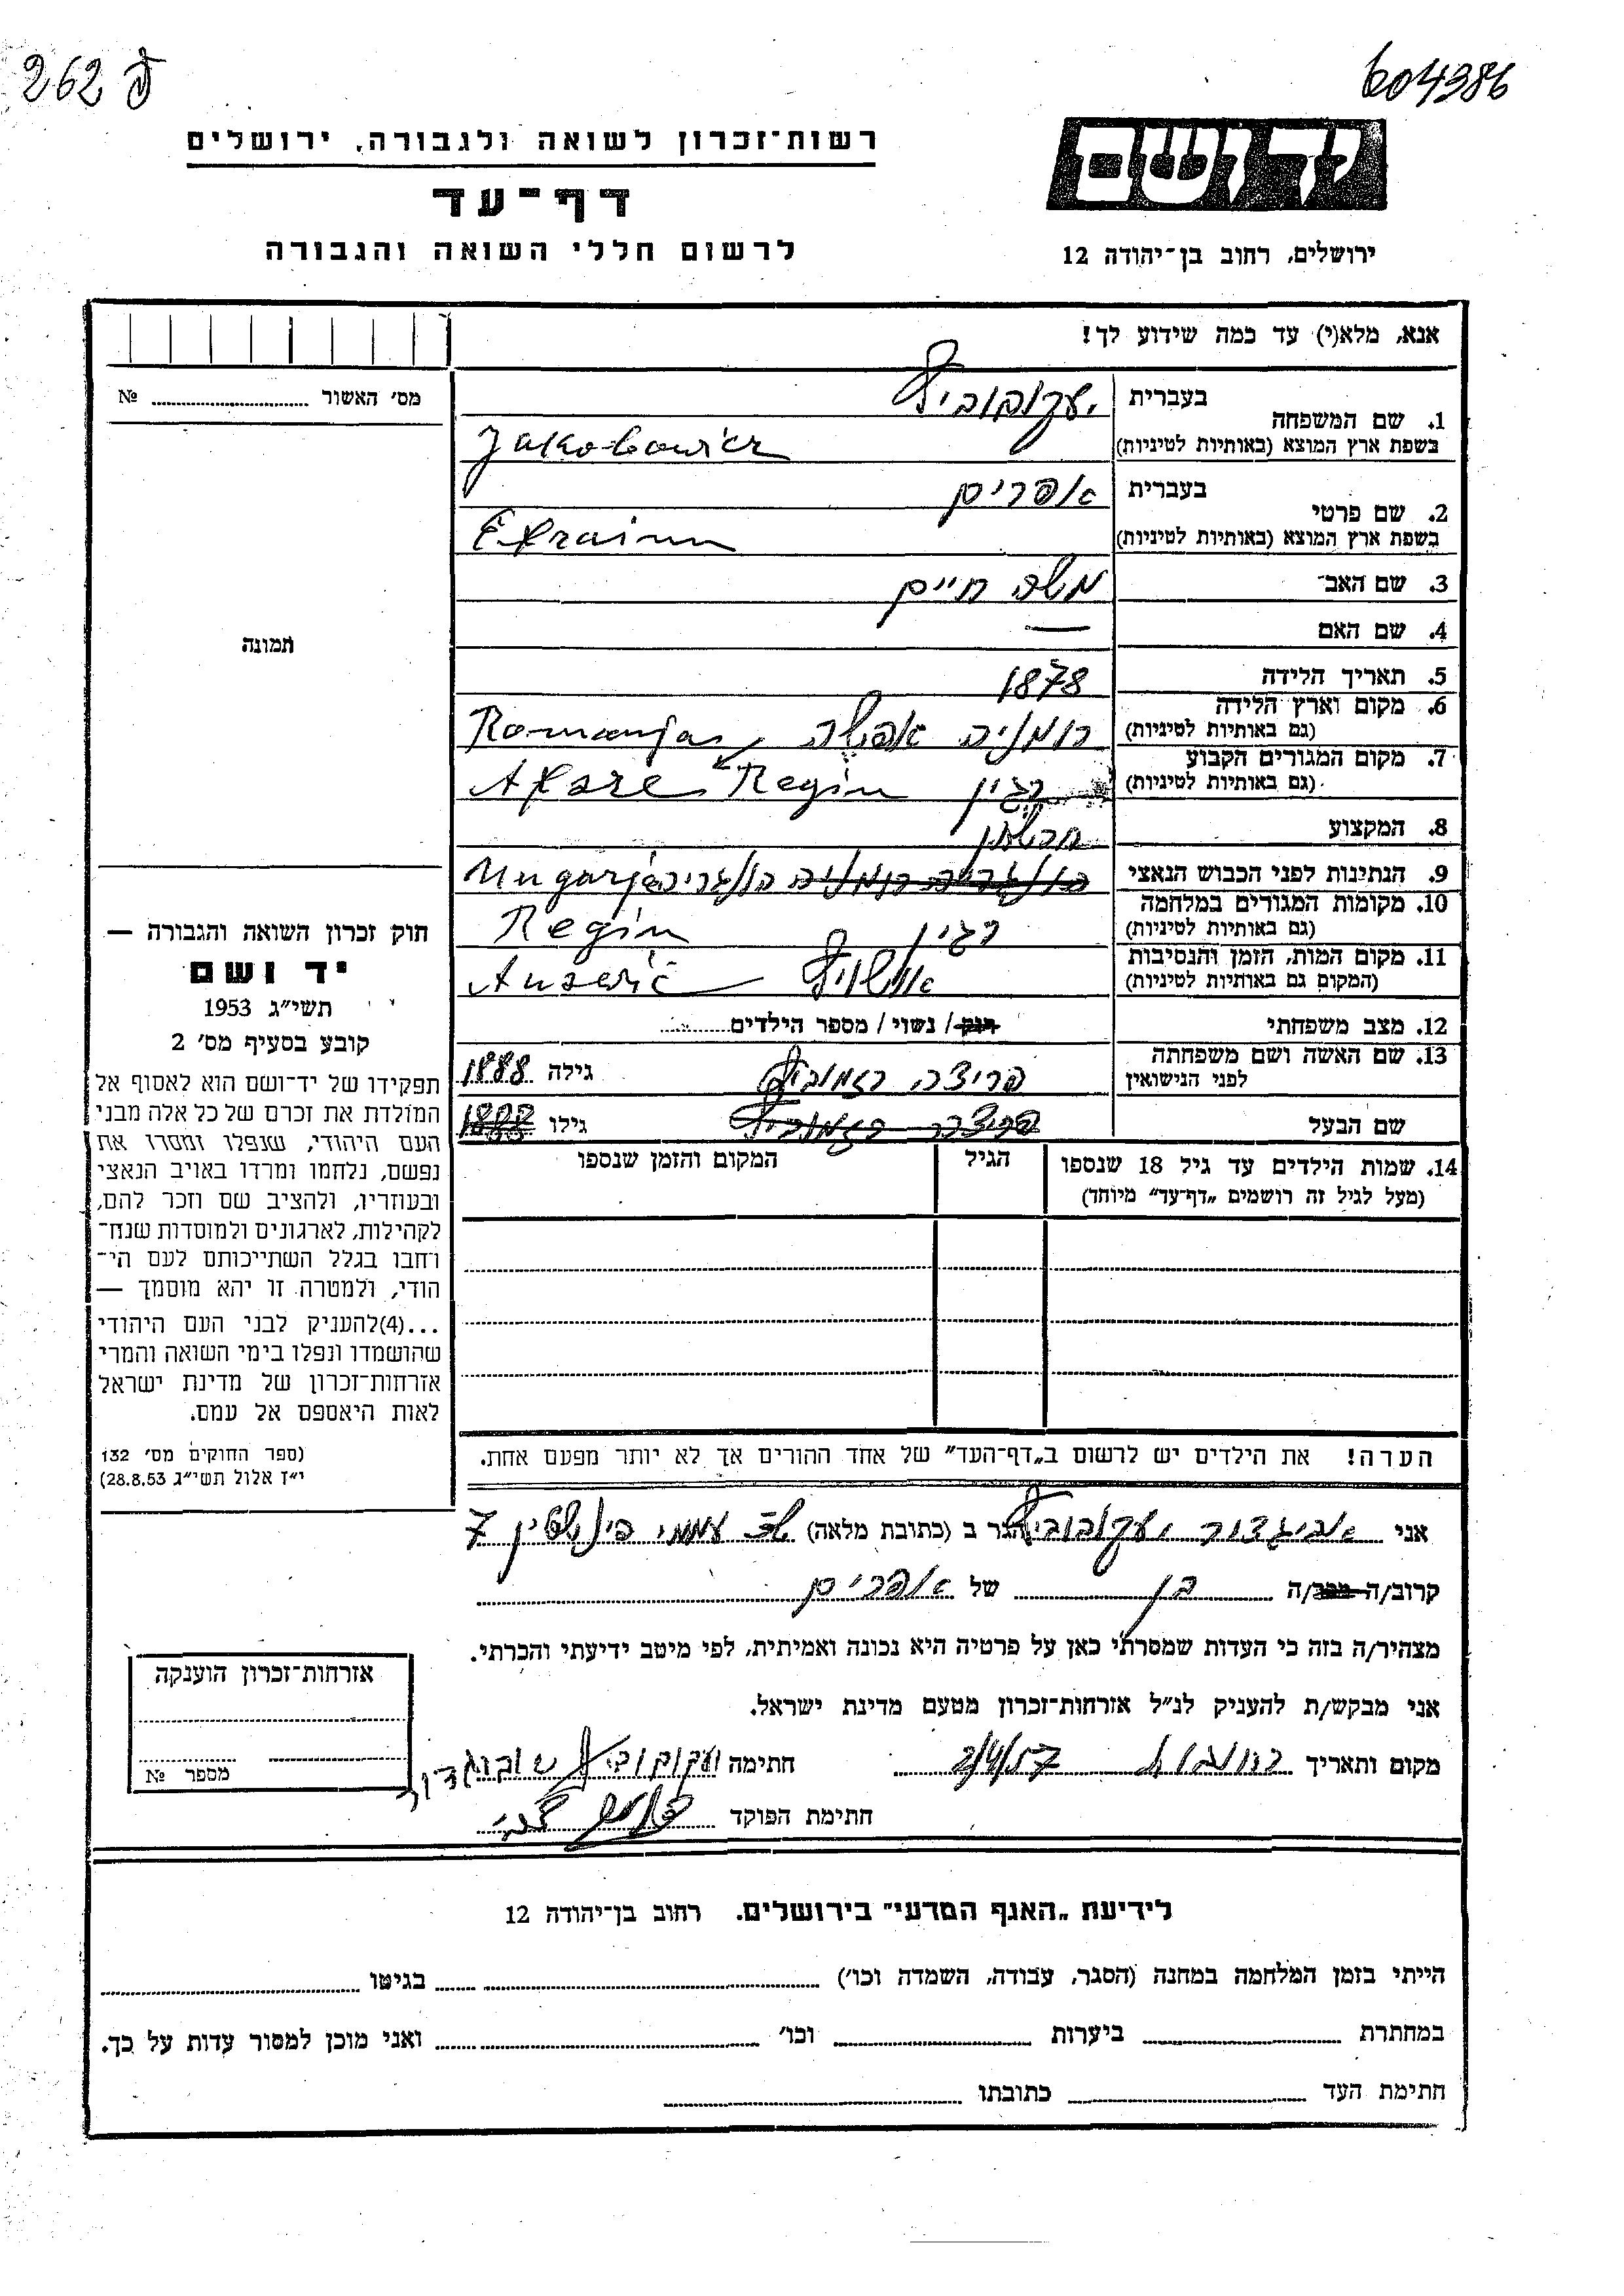 262 פ
604386
יד ושם
רשות־זכרון לשואה ולגבורה, ירושלים
דף־עד
לרשום חללי השואה והגבורה
ירושלים, רחוב בן־יהודה 12
אנא, מלא(י) עד כמה שידוע לך!
מס׳ האשור № 
בעברית יעקובוביץ
1. שם המשפחה
בשפת ארץ המוצא (באותיות לטיניות) Jakobowicz
בעברית אפרים
2. שם פרטי
בשפת ארץ המוצא (באותיות לטיניות) Efraim
3. שם האב משה חיים
4. שם האם —
תמונה
5. תאריך הלידה 1878
6. מקום וארץ הלידה
(גם באותיות לטיניות) רומניה אפשה Romanja
7. מקום המגורים הקבוע
(גם באותיות לטיניות) רגין Regin
8. המקצוע
9. הנתינות לפני הכבוש הנאצי הונגריה רומניה הונגריה Ungarja
10. מקומות המגורים במלחמה
(גם באותיות לטיניות) רגין Regin
11. מקום המות, הזמן והנסיבות
(המקום גם באותיות לטיניות) אושויץ
12. מצב משפחתי רווק / נשוי / מספר הילדים
13. שם האשה ושם משפחתה
לפני הנישואין פריצה גילה 1888
שם הבעל גילו 1888
14. שמות הילדים עד גיל 18 שנספו
(מעל לגיל זה רושמים „דף־עד״ מיוחד)
הגיל
המקום והזמן שנספו
חוק זכרון השואה והגבורה —
יד ושם
תשי״ג 1953
קובע בסעיף מס׳ 2
תפקידו של יד־ושם הוא לאסוף אל
המולדת את זכרם של כל אלה מבני
העם היהודי, שנפלו ומסרו את
נפשם, נלחמו ומרדו באויב הנאצי
ובעוזריו, ולהציב שם וזכר להם,
לקהילות, לארגונים ולמוסדות שנח־
רחבו בגלל השתייכותם לעם הי־
הודי, ולמטרה זו יהא מוסמך —
...(4)להעניק לבני העם היהודי
שהושמדו ונפלו בימי השואה והמרי
אזרחות־זכרון של מדינת ישראל
לאות היאספם אל עמם.
(ספר החוקים מס׳ 132
י״ז אלול תשי״ג 28.8.53)
הערה! את הילדים יש לרשום ב„דף־העד״ של אחד ההורים אך לא יותר מפעם אחת.
אני אביגדור יעקובוביץ הגר ב (כתובת מלאה) עממי 7
קרוב/ה מכר/ה בן של אפרים
מצהיר/ה בזה כי העדות שמסרתי כאן על פרטיה היא נכונה ואמיתית, לפי מיטב ידיעתי והכרתי.
אני מבקש/ת להעניק לנ״ל אזרחות־זכרון מטעם מדינת ישראל.
מקום ותאריך רחובות 2/4/57 חתימה יעקובוביץ
חתימת הפוקד
אזרחות־זכרון הוענקה
מספר №
לידיעת „האגף המדעי״ בירושלים. רחוב בן־יהודה 12
הייתי בזמן המלחמה במחנה (הסגר, עבודה, השמדה וכו׳) בגיטו
במחתרת ביערות וכו׳ ואני מוכן למסור עדות על כך.
חתימת העד כתובתו